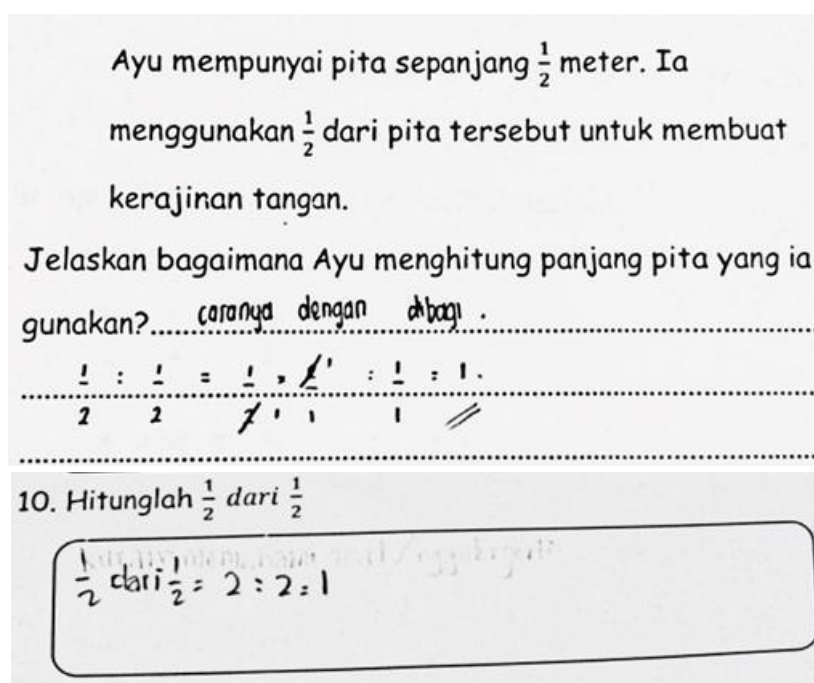 Ayu mempunyai pita sepanjang 1/2 meter. Ia
menggunakan 1/2 dari pita tersebut untuk membuat
kerajinan tangan.
Jelaskan bagaimana Ayu menghitung panjang pita yang ia
gunakan?..... caranya dengan dibagi .
1/2 : 1/2 = 1/2 × 2/1 = 1/1 = 1.
10. Hitunglah 1/2 dari 1/2
1/2 dari 1/2 = 2 : 2 = 1